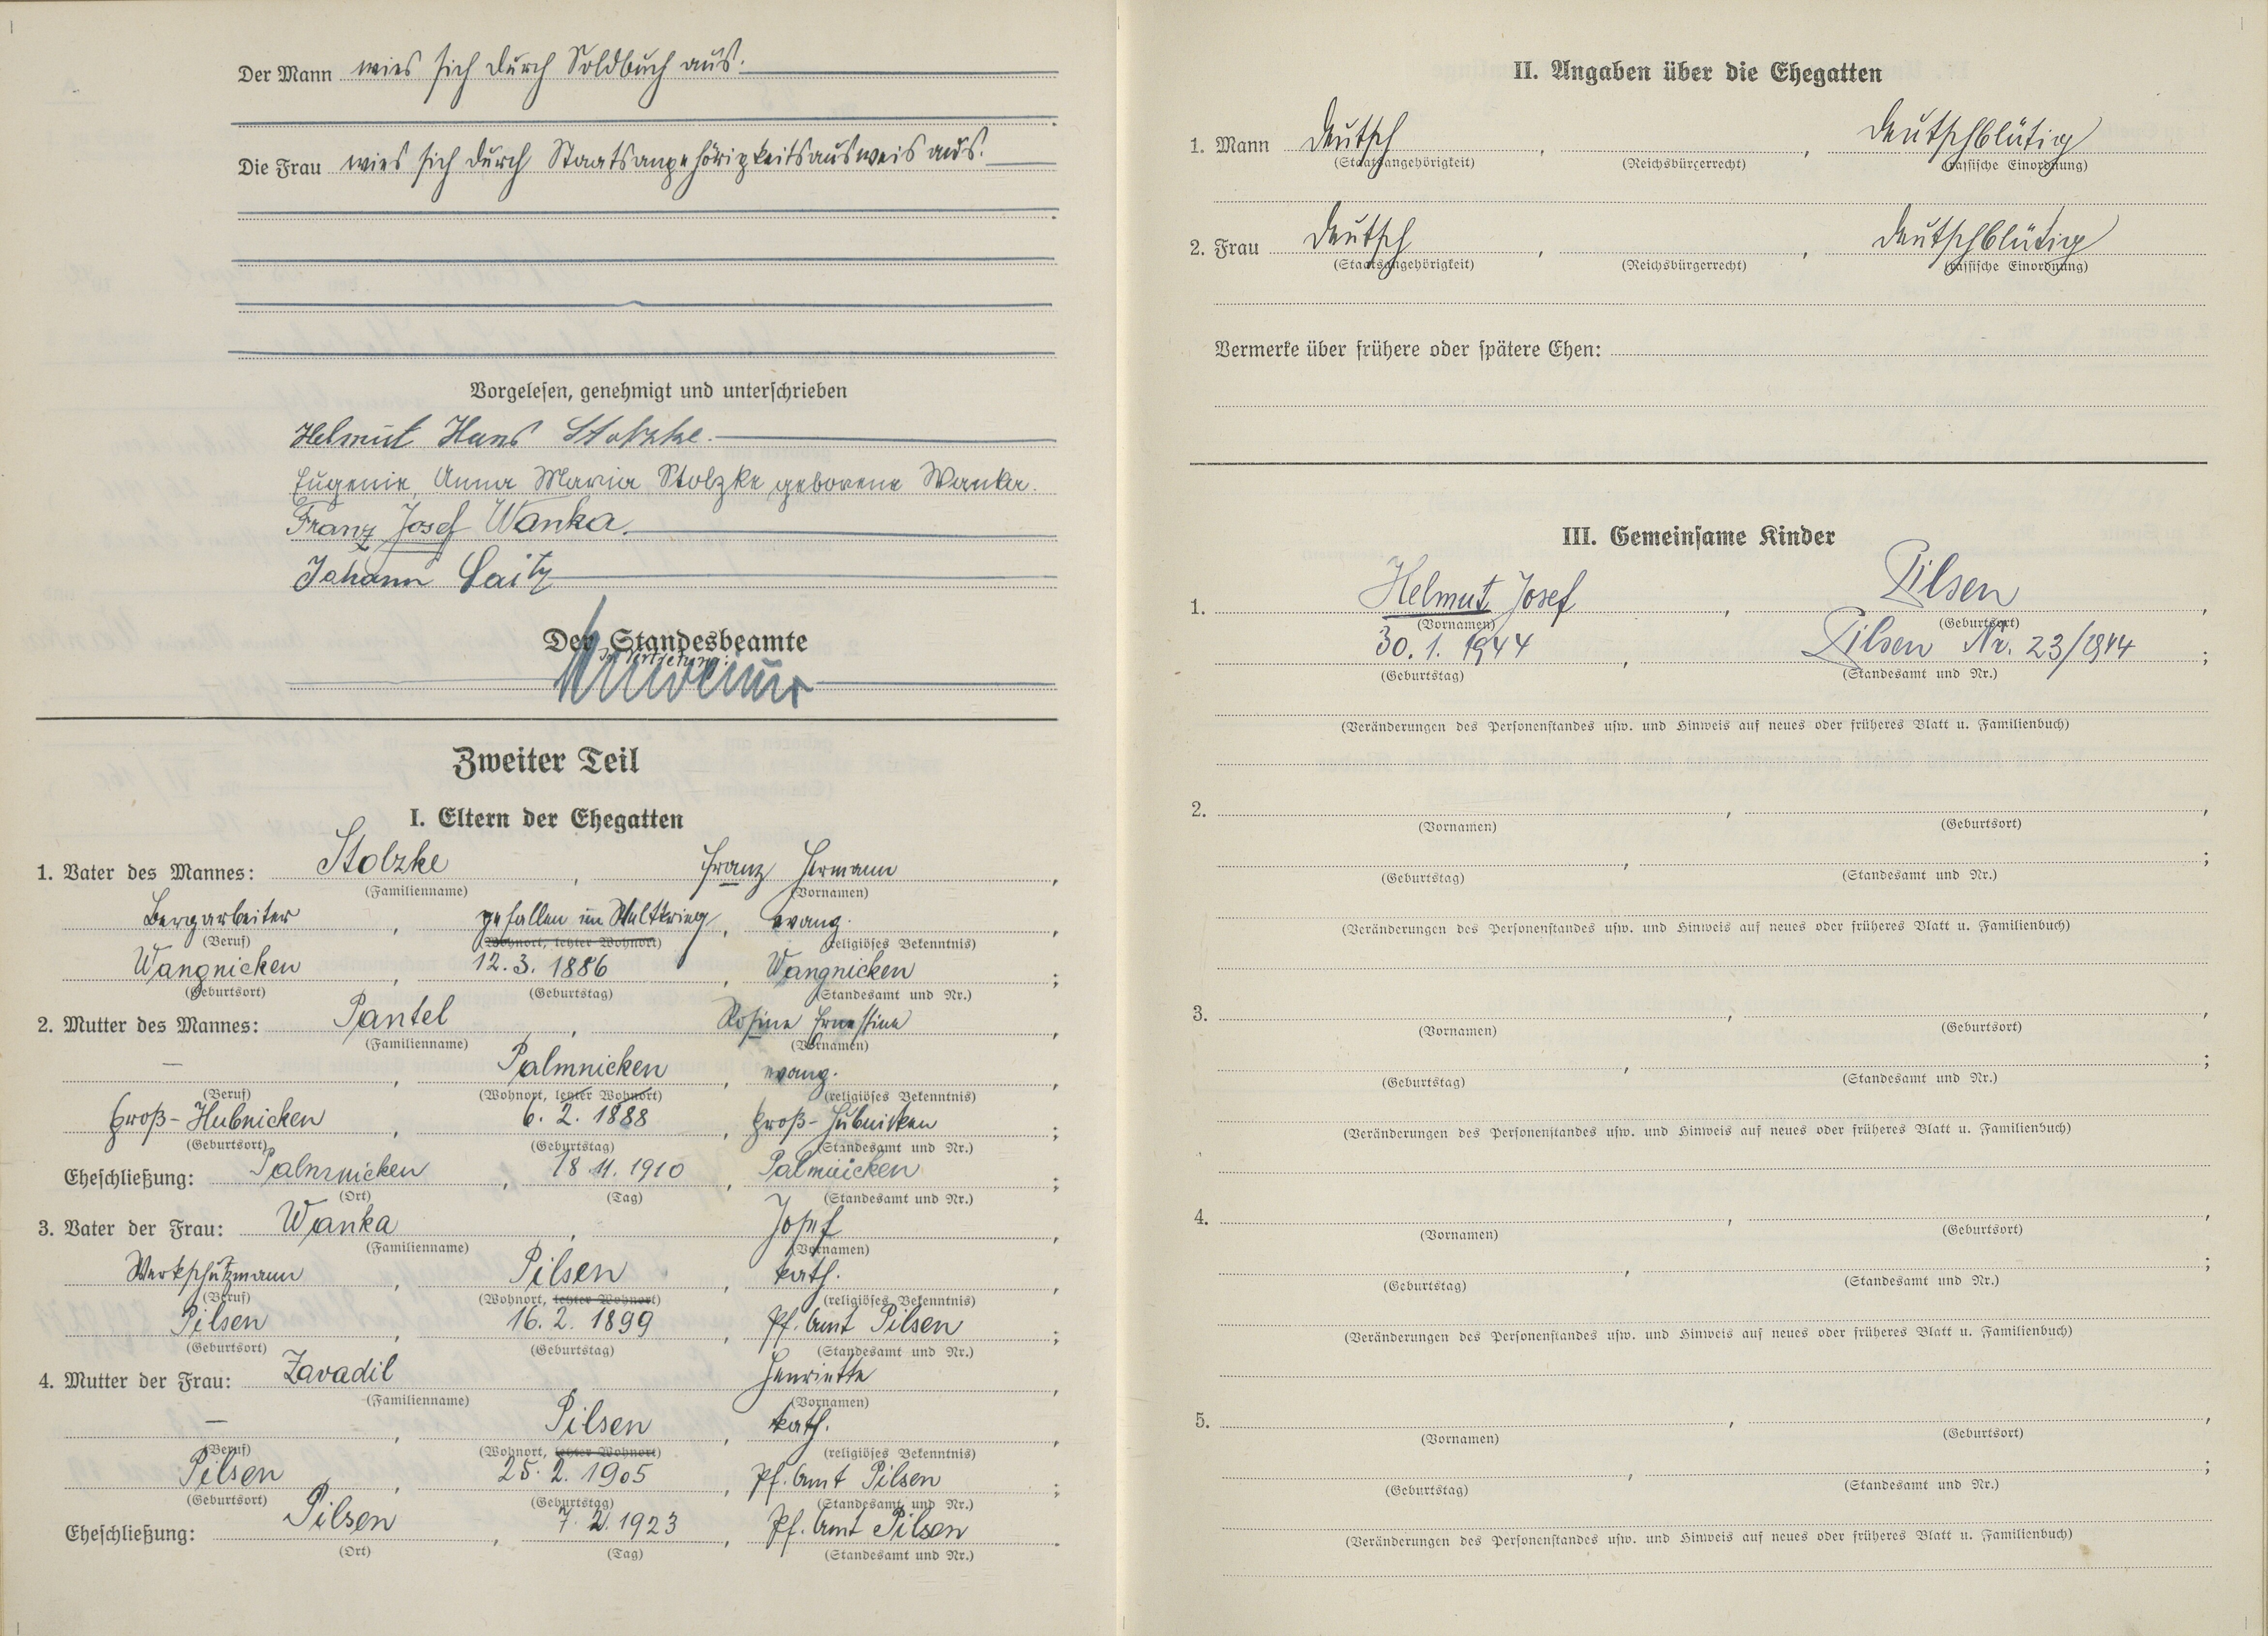 Der Mann wies sich durch Soldbuch aus.
Die Frau wies sich durch Staatsangehörigkeitsausweis aus.
Vorgelesen, genehmigt und unterschrieben
Helmut Hans Stolzke.
Eugenie, Anna Maria Stolzke geborene Wanka.
Franz Josef Wanka.
Johann Saitz
Der Standesbeamte
In Vertretung:
Zweiter Teil
I. Eltern der Ehegatten
1. Vater des Mannes: Stolzke, Franz Hermann,
(Familienname) (Vornamen)
Bergarbeiter, gefallen im Weltkrieg, evang.,
(Beruf) (Wohnort, letzter Wohnort) (religiöses Bekenntnis)
Wangnicken, 12.3.1886, Wangnicken;
(Geburtsort) (Geburtstag) (Standesamt und Nr.)
2. Mutter des Mannes: Pantel, Rosine Ernestine,
(Familienname) (Vornamen)
—, Palmnicken, evang.,
(Beruf) (Wohnort, letzter Wohnort) (religiöses Bekenntnis)
Groß-Hubnicken, 6.2.1888, Groß-Hubnicken;
(Geburtsort) (Geburtstag) (Standesamt und Nr.)
Eheschließung: Palmnicken, 18.11.1910, Palmnicken;
(Ort) (Tag) (Standesamt und Nr.)
3. Vater der Frau: Wanka, Josef,
(Familienname) (Vornamen)
Werkschutzmann, Pilsen, kath.,
(Beruf) (Wohnort, letzter Wohnort) (religiöses Bekenntnis)
Pilsen, 16.2.1899, Pf. Amt Pilsen;
(Geburtsort) (Geburtstag) (Standesamt und Nr.)
4. Mutter der Frau: Zavadil Henriette,
(Familienname) (Vornamen)
—, Pilsen, kath.,
(Beruf) (Wohnort, letzter Wohnort) (religiöses Bekenntnis)
Pilsen, 25.2.1905, Pf. Amt Pilsen;
(Geburtsort) (Geburtstag) (Standesamt und Nr.)
Eheschließung: Pilsen, 7.2.1923, Pf. Amt Pilsen.
(Ort) (Tag) (Standesamt und Nr.)
II. Angaben über die Ehegatten
1. Mann deutsch, , deutschblütig
(Staatsangehörigkeit) (Reichsbürgerrecht) (rassische Einordnung)
2. Frau deutsch, , deutschblütig
(Staatsangehörigkeit) (Reichsbürgerrecht) (rassische Einordnung)
Vermerke über frühere oder spätere Ehen:
III. Gemeinsame Kinder
1. Helmut Josef, Pilsen,
(Vornamen) (Geburtsort)
30.1.1944, Pilsen Nr. 23/1944;
(Geburtstag) (Standesamt und Nr.)
(Veränderungen des Personenstandes usw. und Hinweis auf neues oder früheres Blatt u. Familienbuch)
2. , ,
(Vornamen) (Geburtsort)
, ;
(Geburtstag) (Standesamt und Nr.)
(Veränderungen des Personenstandes usw. und Hinweis auf neues oder früheres Blatt u. Familienbuch)
3. , ,
(Vornamen) (Geburtsort)
, ;
(Geburtstag) (Standesamt und Nr.)
(Veränderungen des Personenstandes usw. und Hinweis auf neues oder früheres Blatt u. Familienbuch)
4. , ,
(Vornamen) (Geburtsort)
, ;
(Geburtstag) (Standesamt und Nr.)
(Veränderungen des Personenstandes usw. und Hinweis auf neues oder früheres Blatt u. Familienbuch)
5. , ,
(Vornamen) (Geburtsort)
, ;
(Geburtstag) (Standesamt und Nr.)
(Veränderungen des Personenstandes usw. und Hinweis auf neues oder früheres Blatt u. Familienbuch)